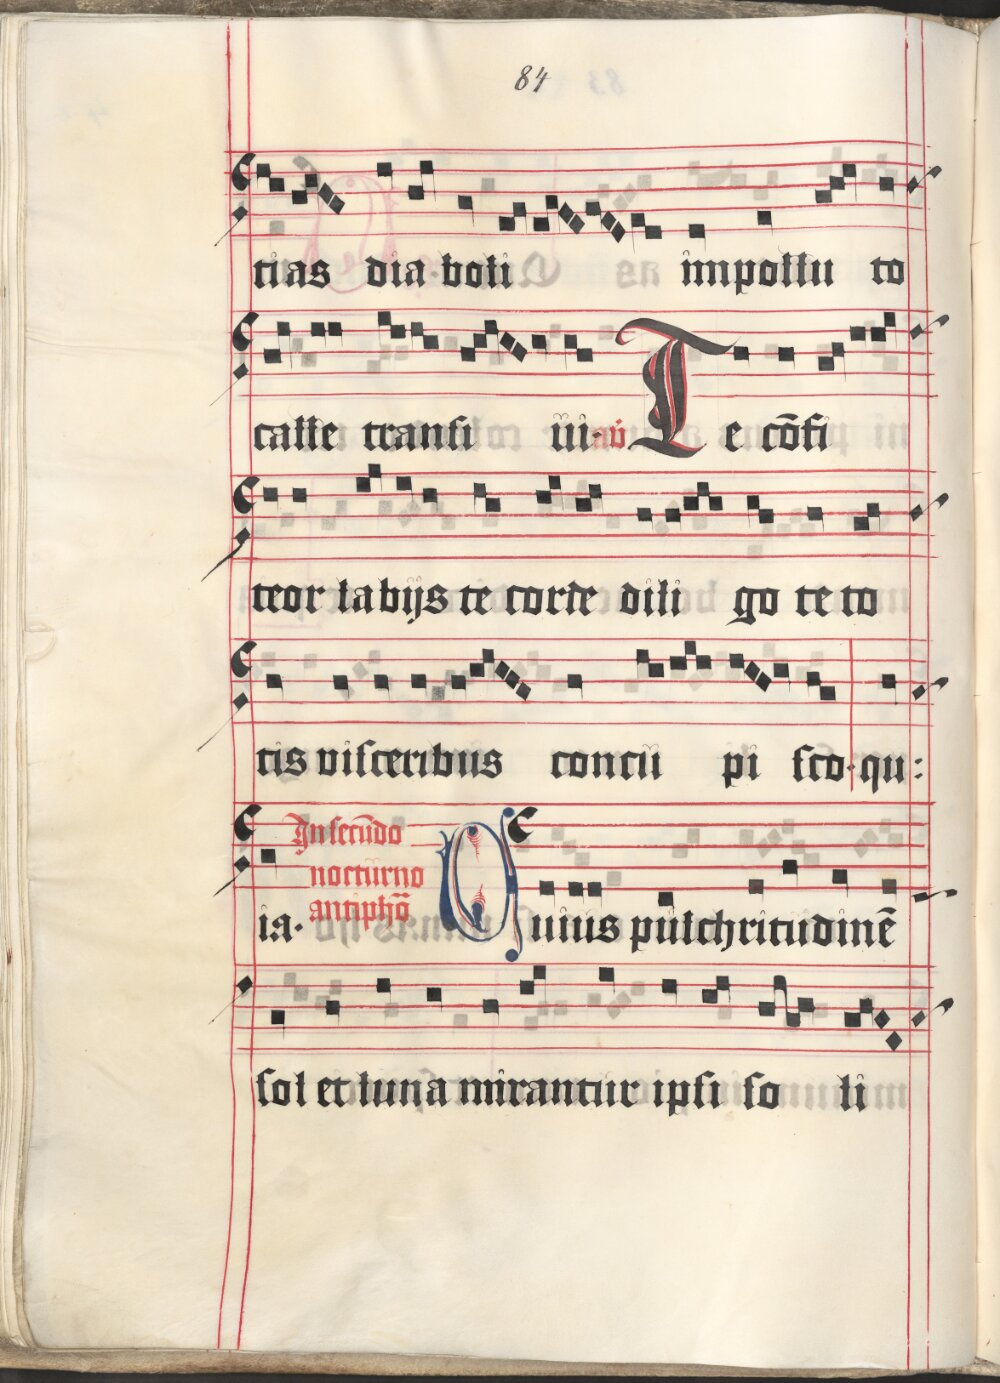 84
tias dia boli impollu to
calle transi iui. v̄. Te cōfi
teor labijs te corde dili go te to
tis visceribus concu pi sco. qu:
In secūdo
nocturno
antiphō
ia. Cuius pulchritudinē
sol et luna mirantur ipsi so li